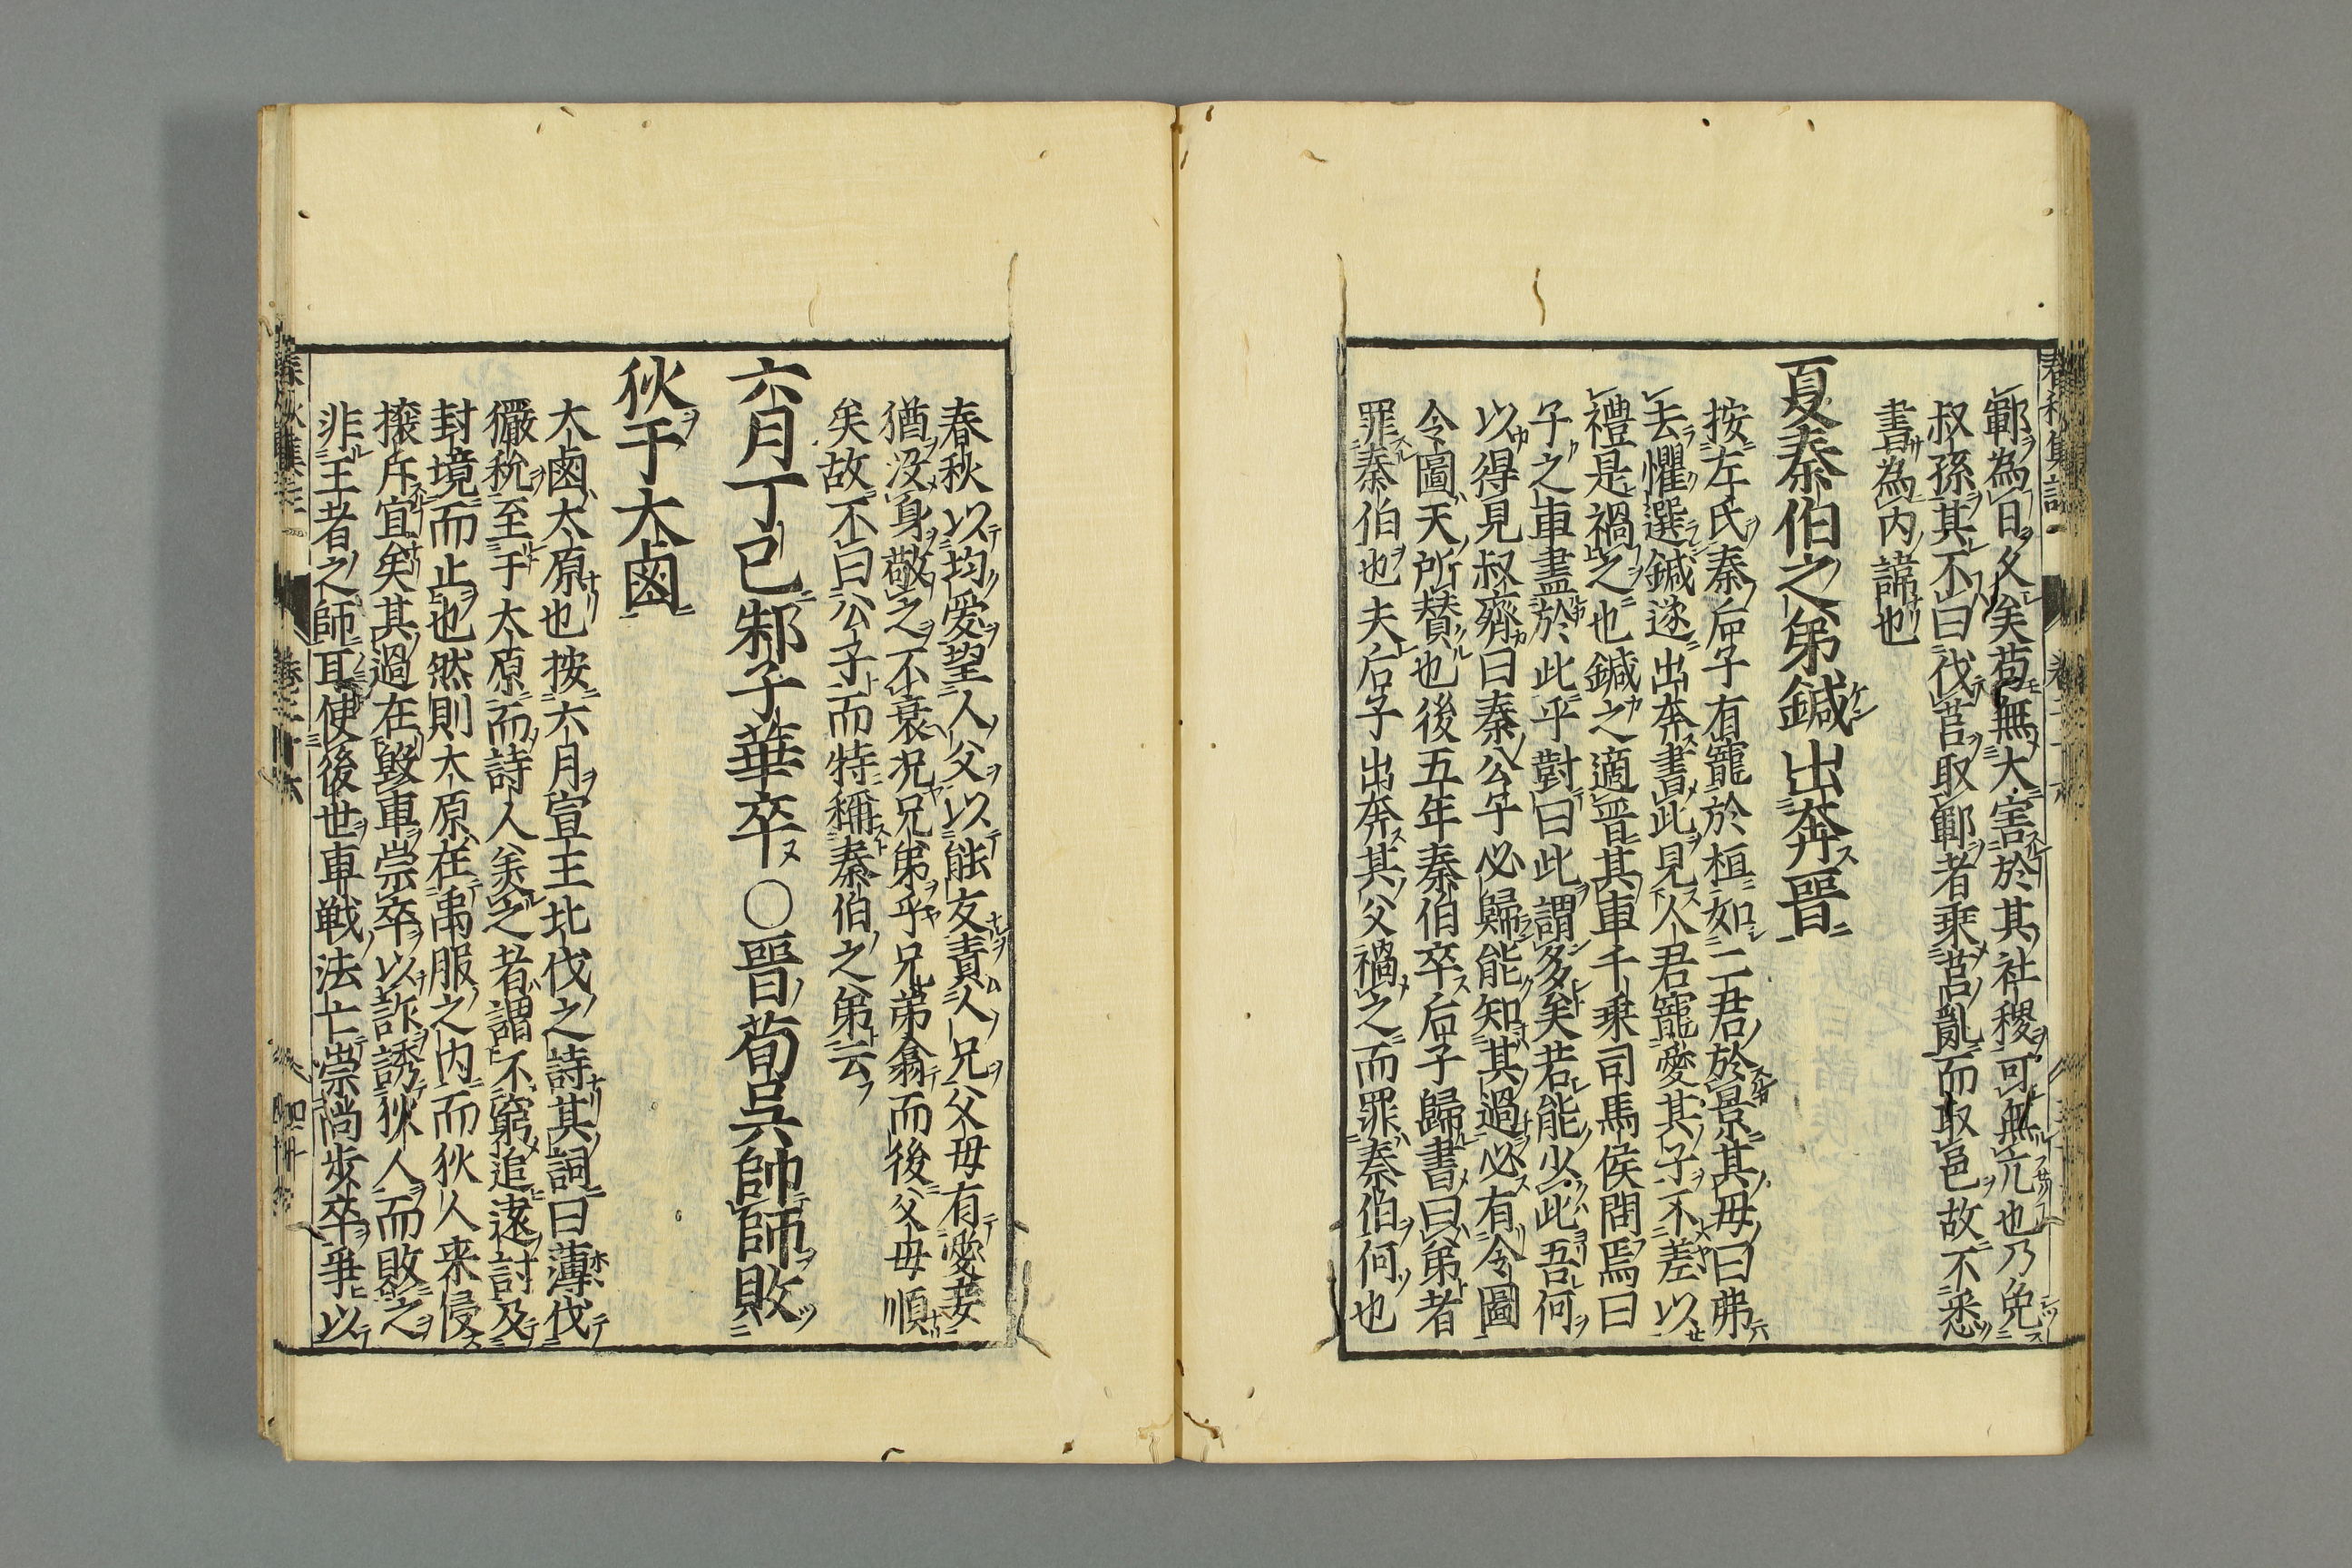 鄆為日久矣苟無大害於其社稷可無亢也乃免
叔孫其不曰伐莒取鄆者乗莒亂而取邑故不悉
書為内諱也
夏秦伯之弟鍼出奔晉
按左氏秦后子有寵於桓如二君於景其母曰弗
去懼選鍼遂出奔書此見人君寵愛其子不差以
禮是禍之也鍼之適晉其車千乗司馬侯問焉曰
子之車盡於此乎對曰此謂多矣若能少此吾何
以得見叔齊曰秦公子必歸能知其過必有令圖
令圖天所賛也後五年秦伯卒后子歸書曰弟者
罪秦伯也夫后子出奔其父禍之而罪秦伯何也
春秋以均愛望人父以能友責人兄父母有愛妾
猶没身敬之不衰况兄弟乎兄弟翕而後父母順
矣故不曰公子而特稱秦伯之弟云
六月丁巳邾子華卒○晉荀呉帥師敗
狄于大鹵
大鹵太原也按六月宣王北伐之詩其詞曰薄伐
玁狁至于太原而詩人美之者謂不窮追遠討及
封境而止也然則大原在禹服之内而狄人来侵
攘斥宜矣其過在毀車崇卒以詐誘狄人而敗之
非王者之師耳使後世車戦法亡崇尚歩卒爭以